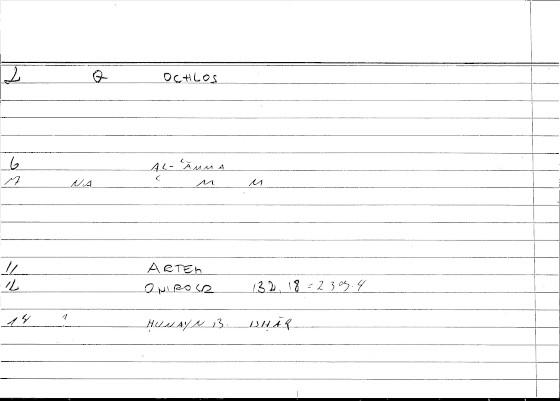 2 Q OCHLOS
6 AL-ʿĀMMA
7 NA ʿ M M
11 ARTEM
12 ONIROCR 132,18 = 239.4
14 1 HUNAYN B. ISHĀQ